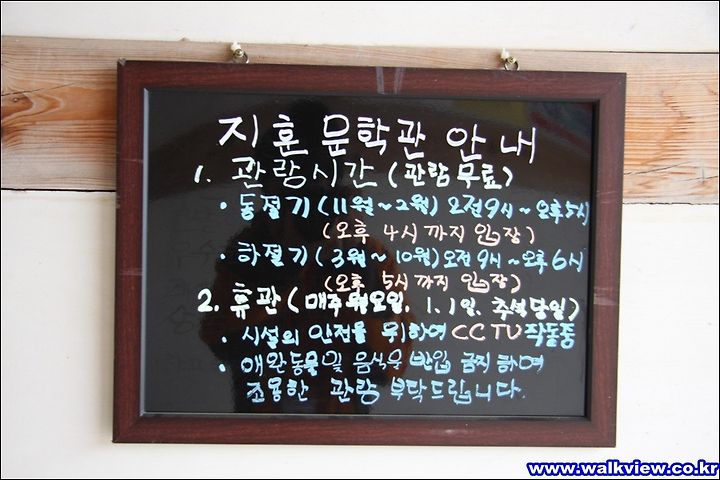 지훈문학관 안내
1. 관람시간 (관람무료)
· 동절기 (11월~2월) 오전9시~오후5시
(오후 4시까지 입장)
· 하절기 (3월~10월) 오전9시~오후6시
(오후 5시까지 입장)
2. 휴관 (매주 월요일, 1.1일, 추석당일)
· 시설의 안전을 위하여 CCTV 작동중
· 애완동물 및 음식물 반입 금지하며
조용한 관람 부탁드립니다.
www.walkview.co.kr